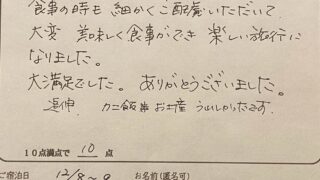 食事の時も 細かくご配慮いただいて
大変 美味しく食事ができ 楽しい旅行に
なりました。
大満足でした。 ありがとうございました。
追伸 カニ飯 お土産 うれしかったです。
10点満点で 10 点
ご宿泊日 12/8〜9 お名前(匿名可)